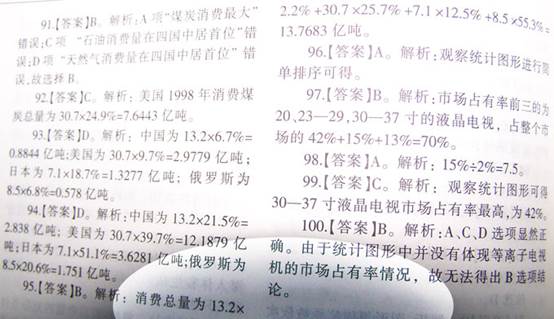 91.【答案】B。解析：A 项“煤炭消费最大”
错误；C 项 “石油消费量在四国中居首位”错
误；D 项 “天然气消费量在四国中居首位”错
误，故选择 B。
92.【答案】C。解析：美国 1998 年消费煤
炭总量为 30.7×24.9%=7.6443 亿吨。
93.【答案】D。解析：中国为 13.2×6.7%=
0.8844 亿吨；美国为 30.7×9.7%=2.9779 亿吨；
日本为 7.1×18.7%=1.3277 亿吨；俄罗斯为
8.5×6.8%=0.578 亿吨。
94.【答案】D。解析：中国为 13.2×21.5%=
2.838 亿吨；美国为 30.7×39.7%=12.1879 亿
吨；日本为 7.1×51.1%=3.6281 亿吨；俄罗斯为
8.5×20.6%=1.751 亿吨。
95.【答案】B。解析：消费总量为 13.2×
2.2%+30.7×25.7%+7.1×12.5%+8.5×55.3%=
13.7683 亿吨。
96.【答案】A。解析：观察统计图形进行简
单排序可得。
97.【答案】B。解析：市场占有率前三的为
20、23—29、30—37 寸的液晶电视，占整个市
场的 42%+15%+13%=70%。
98.【答案】A。解析：15%÷2%=7.5。
99.【答案】C。解析：观察统计图形可得
30—37 寸液晶电视市场占有率最高，为 42%。
100.【答案】B。解析：A、C、D 选项显然正
确。由于统计图形中并没有体现等离子电视
机的市场占有率情况，故无法得出 B 选项结
论。